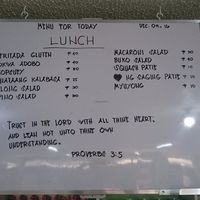 MENU FOR TODAY
DEC. 09. 10
LUNCH
FRITADA GLUTEN ₱ 40
OKRA ADOBO ₱ 40
₱ 40
KALABASA ₱ 25
SALAD ₱ 30
SALAD ₱ 30
MACARONI SALAD ₱ 30
BUKO SALAD ₱ 30
SQUASH PATIE ₱ 10
♥ NG SAGING PATIE ₱ 10
₱ 10
TRUST IN THE LORD WITH ALL THINE HEART,
AND LEAN NOT UNTO THINE OWN
UNDERSTANDING.
PROVERBS 3:5